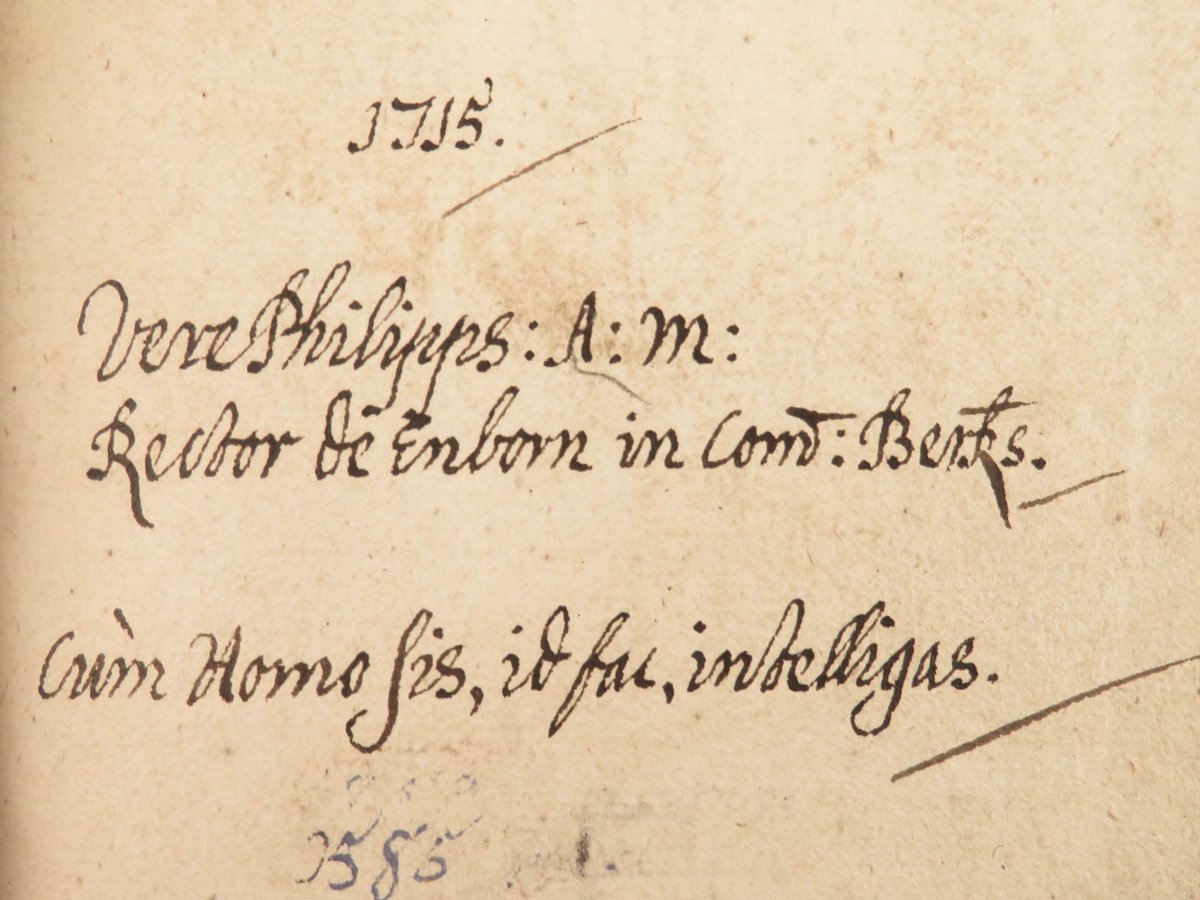 1715.
Vere Philipps: A: M:
Rector de Enborn in Com̄: Berks.
Cùm Homo sis, id fac, intelligas.
1585